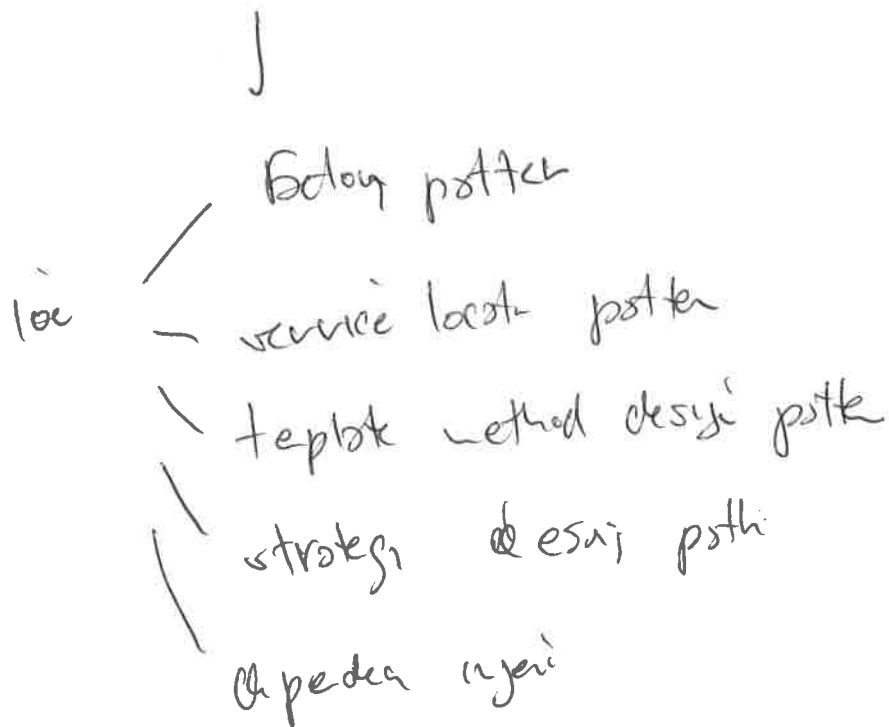 Factory pattern
Ioc
service locator pattern
template method design pattern
strategy design pattern
dependency injection